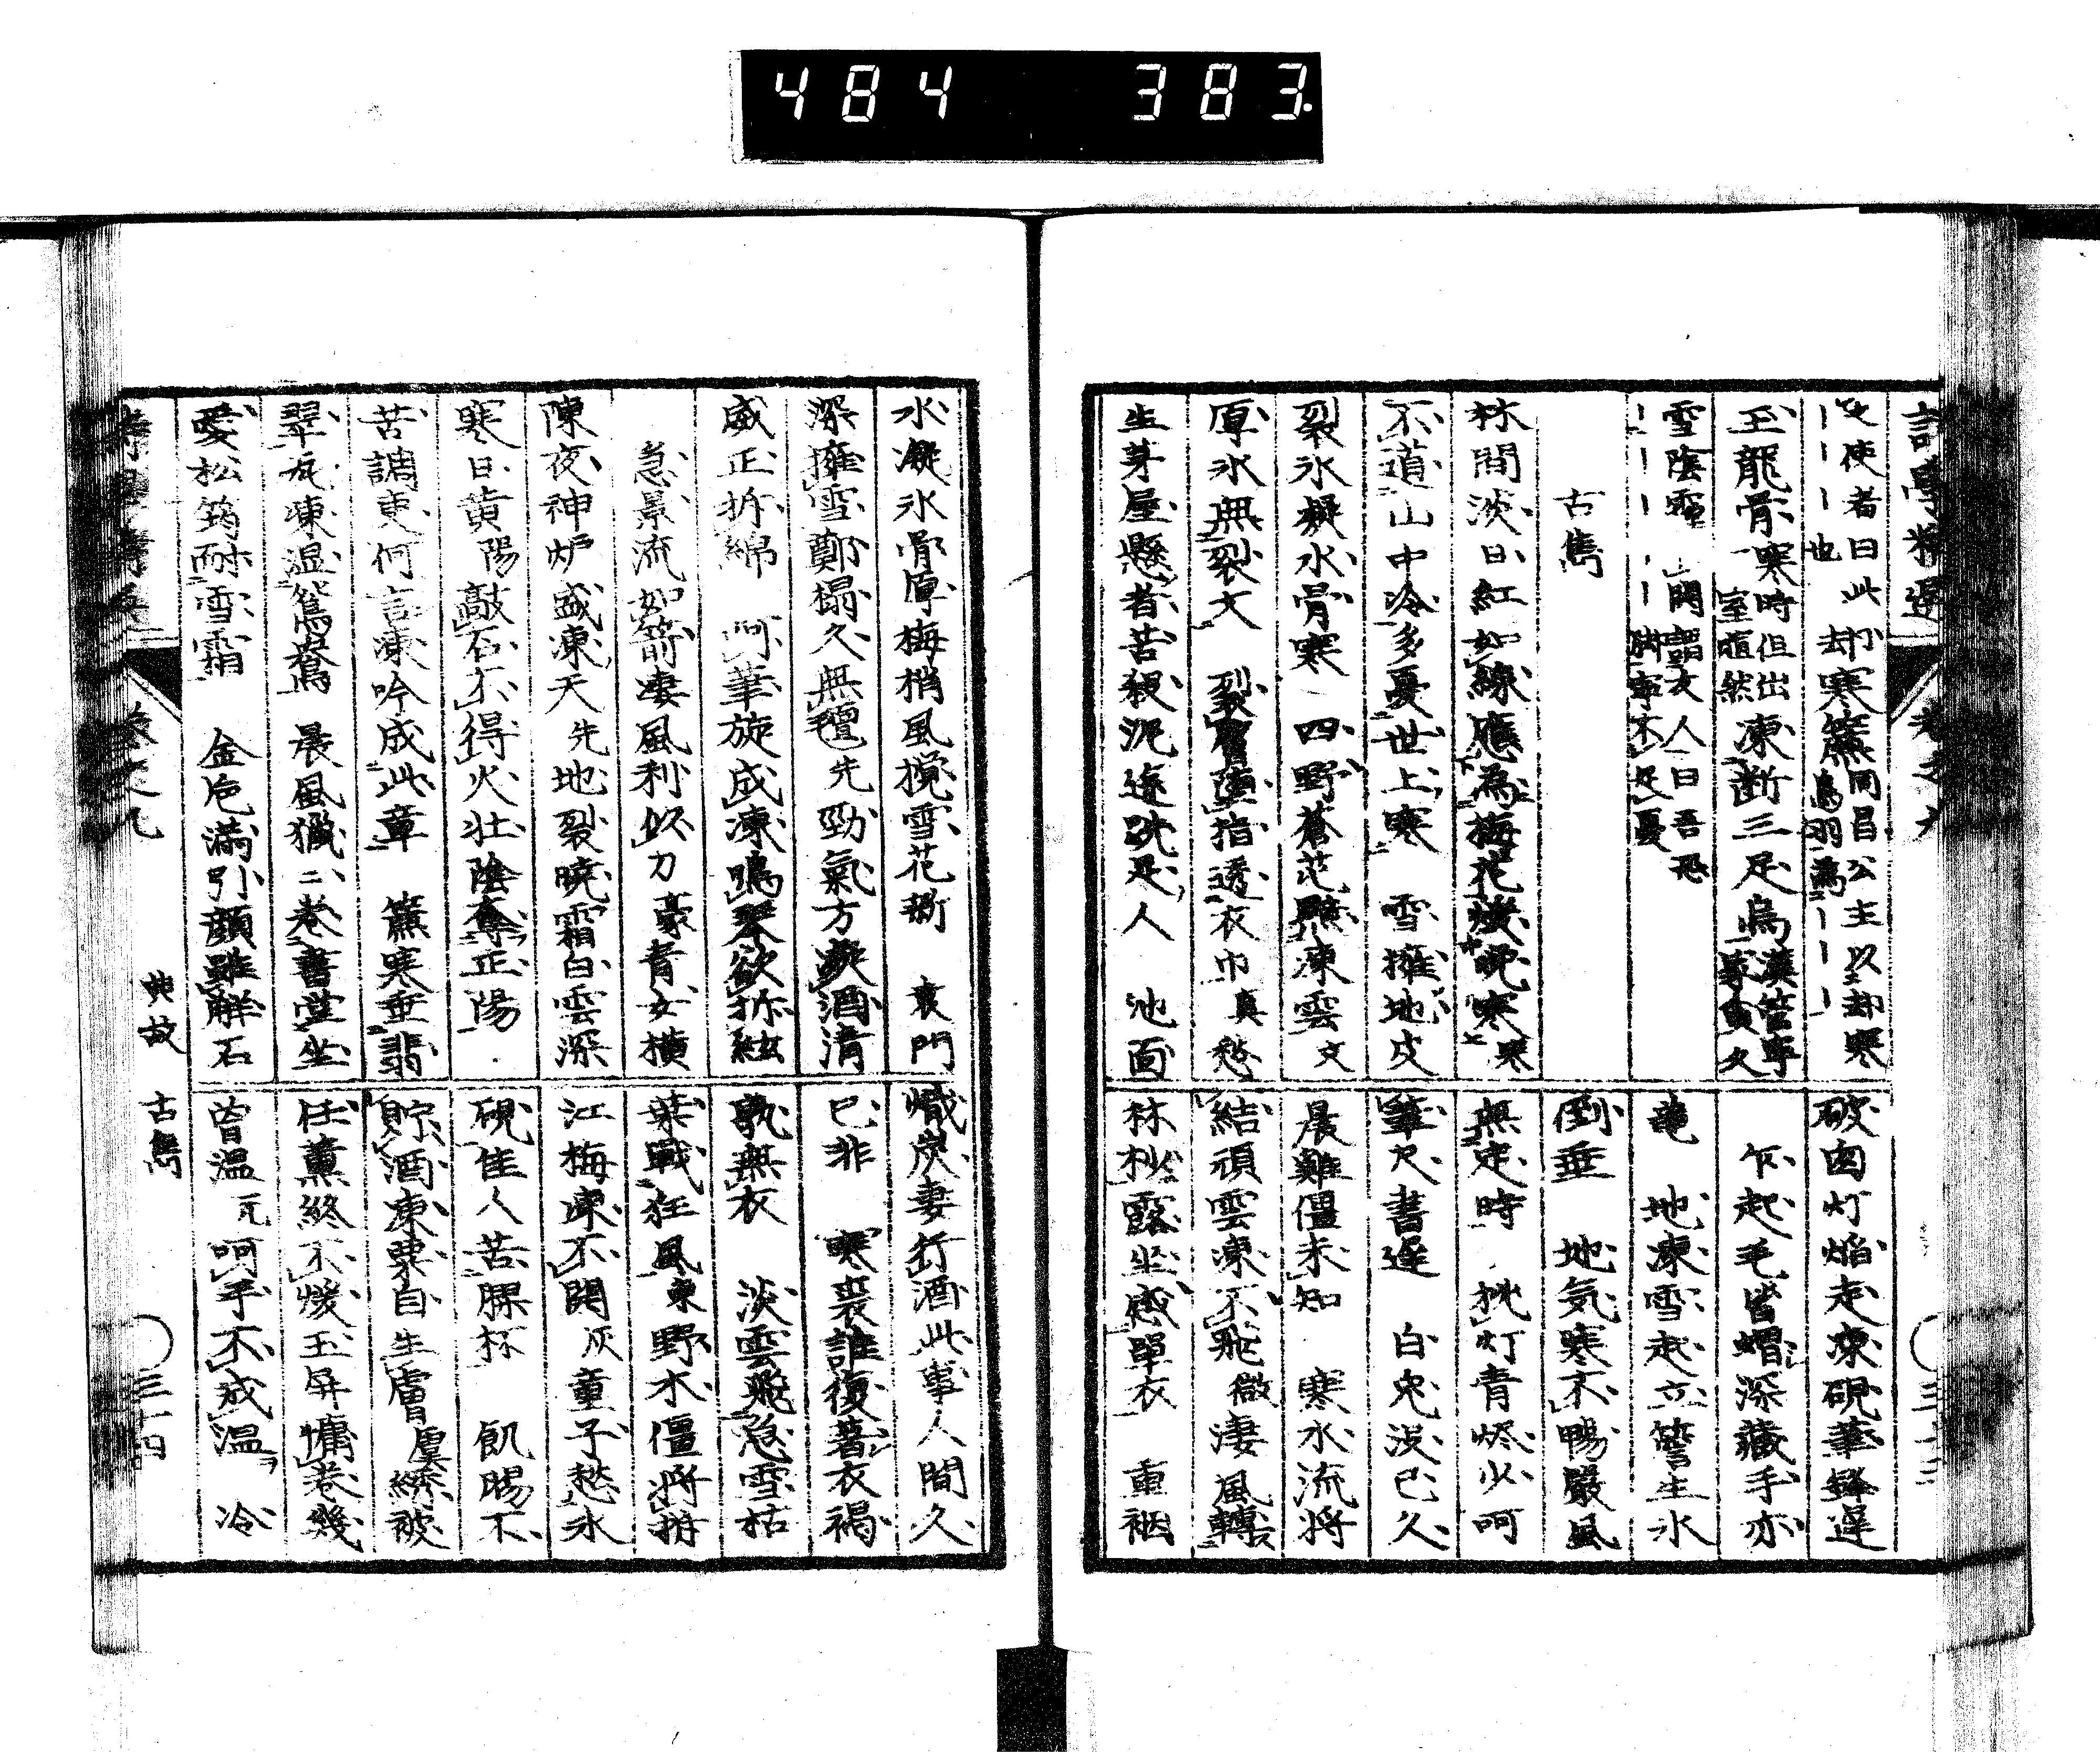 484 383.
火使者曰此
却寒簾同昌公主以却寒
鳥羽為ーーー
ーーー也
玉龍骨寒時但出
室熾然
凍断三足烏漢管寧
雪陰霾
謂友人曰吾恐
ーーーーー不足憂
古雋
林間淡日紅如線應為梅花燠晩寒寒
不道山中冷多憂世上寒 雪擁地皮
裂氷凝水骨寒 四野蒼茫黯凍雲文
厚氷無裂文 裂膚墮指透衣巾真愁
生芽屋懸者苦殺泥途跣足人 池面
破囱灯焰走凍硯筆鋒遲
乍起毛皆蝟深藏手亦
龜 地凍雪起立簷生氷
倒垂 地気寒不暢嚴風
無定時 挑灯青燼少呵
筆尺書遲 白兔没已久
晨雞僵未知 寒水流將
結頑雲凍不飛微淒風轉
林杪露坐感單衣 重裀
水凝氷骨厚梅梢風攪雪花新 袁門
深擁雪鄭榻久無氊先勁氣方凝酒清
威正折綿 呵筆旋成凍鳴琴欲折絃
急景流如箭凄風利似刀豪青女横
陳夜神炉盛凍天先地裂曉霜白雲深
寒日黄陽敲石不得火壮陰奪正陽
苦調更何言凍吟成此章 簾寒垂翡
翠瓦凍温鴛鴦 晨風獵二巻書堂坐
愛松筠耐雪霜 金卮満引顔雖解石
熾炭妻行酒此事人間久
已非 寒裘誰復著衣褐
孰無衣 淡雲飛急雪枯
葉戰狂風東野木僵將拊
江梅凍不開灰童子愁氷
硯佳人苦膠杯 飢腸不
貯酒凍粟自生膚虞綈被
任薫終不煖玉屏慵巻幾
曽温瓦呵手不成温 冷
典故 古雋
三十四